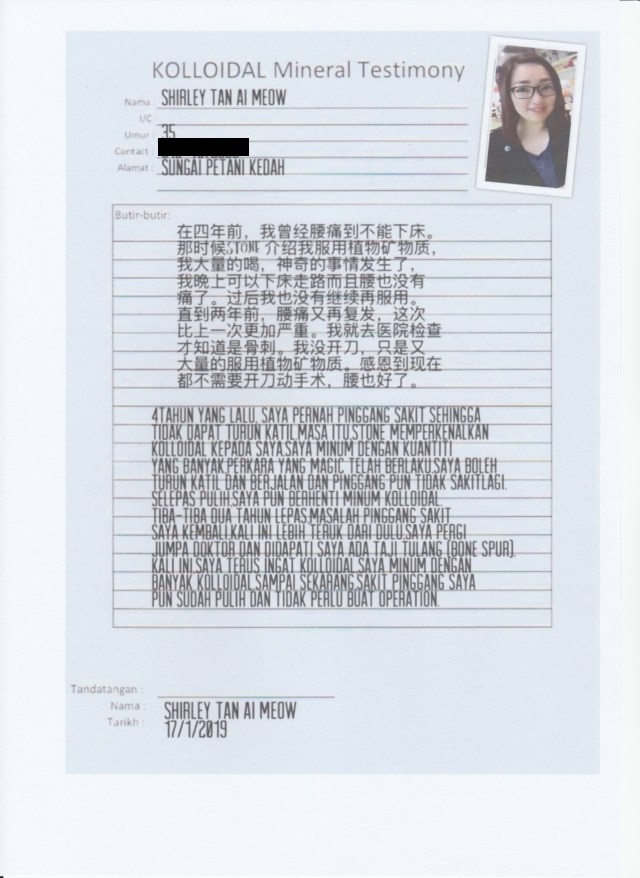 KOLLOIDAL Mineral Testimony
Nama : SHIRLEY TAN AI MEOW
I/C :
Umur : 35
Contact :
Alamat : SUNGAI PETANI KEDAH
Butir-butir:
在四年前，我曾经腰痛到不能下床。
那时候STONE 介绍我服用植物矿物质，
我大量的喝，神奇的事情发生了，
我晚上可以下床走路而且腰也没有
痛了。过后我也没有继续再服用。
直到两年前，腰痛又再复发，这次
比上一次更加严重。我就去医院检查
才知道是骨刺。我没开刀，只是又
大量的服用植物矿物质。感恩到现在
都不需要开刀动手术，腰也好了。
4TAHUN YANG LALU, SAYA PERNAH PINGGANG SAKIT SEHINGGA
TIDAK DAPAT TURUN KATIL.MASA ITU,STONE MEMPERKENALKAN
KOLLOIDAL KEPADA SAYA.SAYA MINUM DENGAN KUANTITI
YANG BANYAK.PERKARA YANG MAGIC TELAH BERLAKU.SAYA BOLEH
TURUN KATIL DAN BERJALAN DAN PINGGANG PUN TIDAK SAKITLAGI.
SELEPAS PULIH,SAYA PUN BERHENTI MINUM KOLLOIDAL.
TIBA-TIBA DUA TAHUN LEPAS,MASALAH PINGGANG SAKIT
SAYA KEMBALI.KALI INI LEBIH TERUK DARI DULU.SAYA PERGI
JUMPA DOKTOR DAN DIDAPATI SAYA ADA TAJI TULANG (BONE SPUR).
KALI INI,SAYA TERUS INGAT KOLLOIDAL.SAYA MINUM DENGAN
BANYAK KOLLOIDAL.SAMPAI SEKARANG,SAKIT PINGGANG SAYA
PUN SUDAH PULIH DAN TIDAK PERLU BUAT OPERATION.
Tandatangan :
Nama : SHIRLEY TAN AI MEOW
Tarikh : 17/1/2019